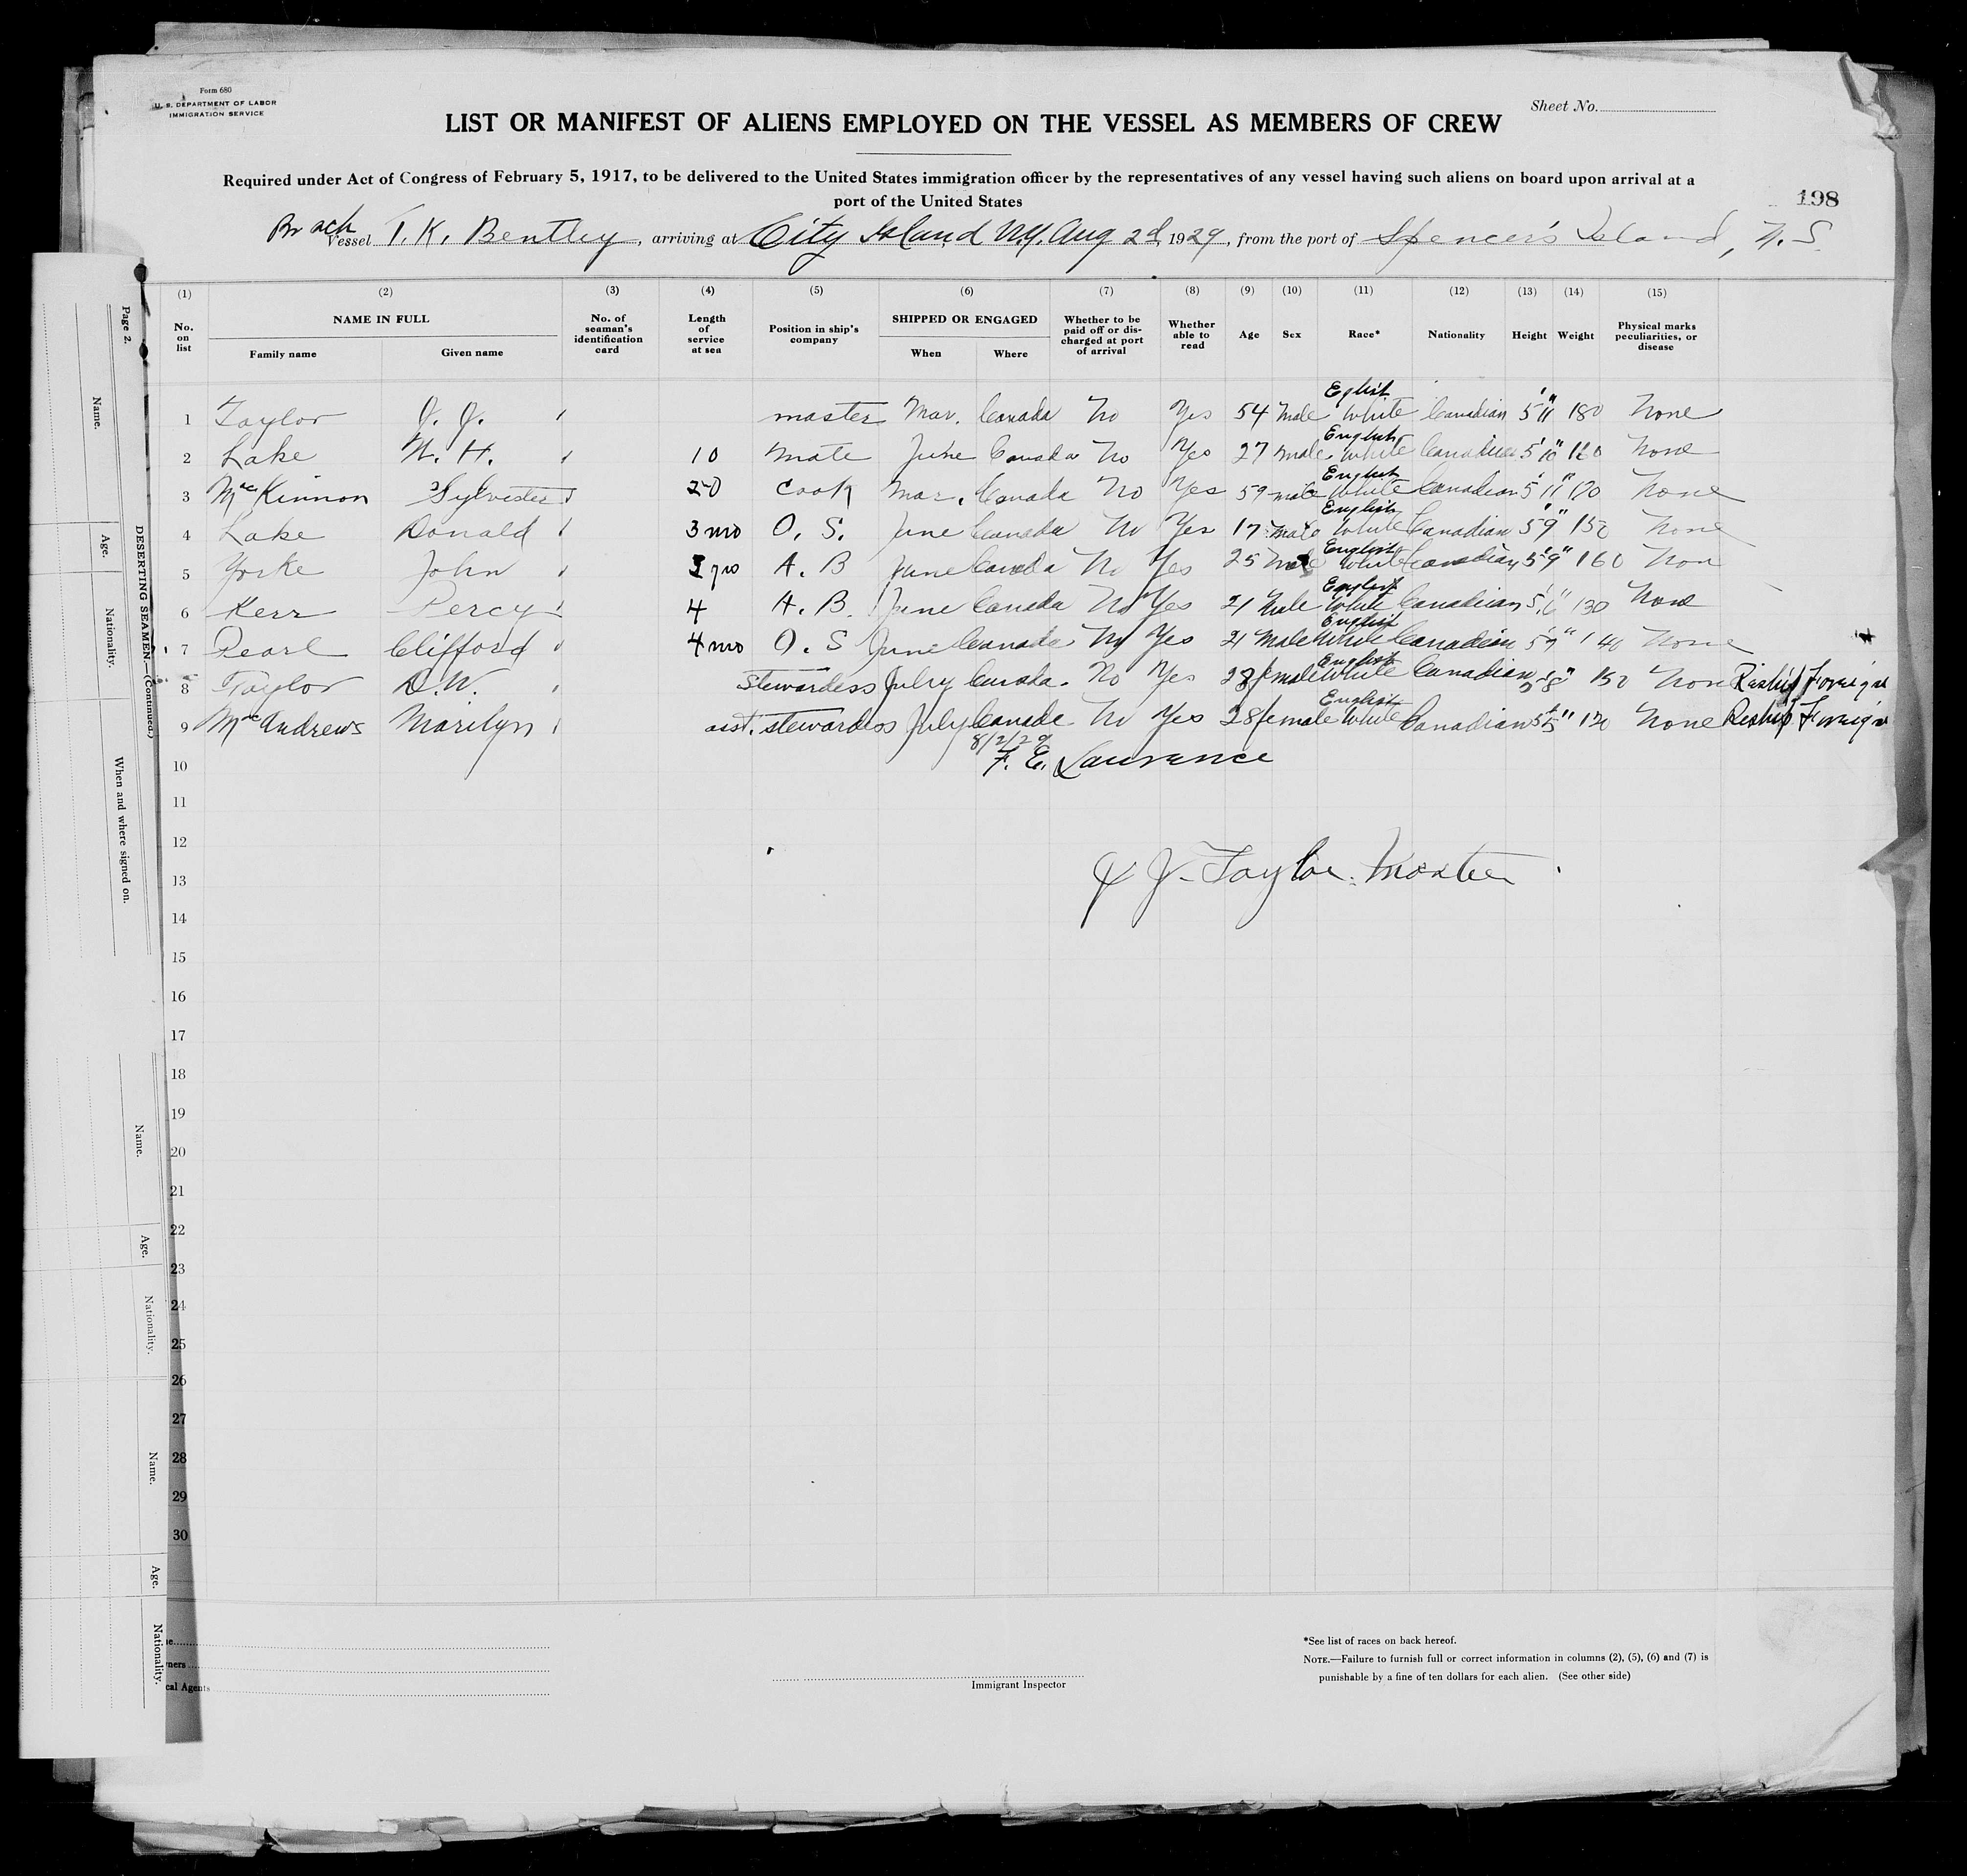 Form 680
U. S. DEPARTMENT OF LABOR
IMMIGRATION SERVICE
Sheet No.
LIST OR MANIFEST OF ALIENS EMPLOYED ON THE VESSEL AS MEMBERS OF CREW
Required under Act of Congress of February 5, 1917, to be delivered to the United States immigration officer by the representatives of any vessel having such aliens on board upon arrival at a
port of the United States
198
Vessel T. K. Bentley, arriving at City Island N.Y. Aug 2d, 1929, from the port of Spencer's Island, N. S.
(1) (2) (3) (4) (5) (6) (7) (8) (9) (10) (11) (12) (13) (14) (15)
No. on list
NAME IN FULL
Family name Given name
No. of seaman's identification card
Length of service at sea
Position in ship's company
SHIPPED OR ENGAGED
When Where
Whether to be paid off or discharged at port of arrival
Whether able to read
Age Sex Race* Nationality Height Weight
Physical marks peculiarities, or disease
1 Taylor J. J. master Mar. Canada No Yes 54 male White Canadian 5'11" 180 None
2 Lake 10 mate June Canada No Yes 27 male English White Canadian 5'10" 160 None
3 McKinnon Sylvester 20 cook Mar. Canada No Yes 59 male English White Canadian 5'11" 170 None
4 Lake Donald 3 mo O. S. June Canada No Yes 17 male English White Canadian 5'9" 150 None
5 Yorke John yrs A. B June Canada No Yes 25 male English White Canadian 5'9" 160 Non
6 Kerr Percy 4 A. B. June Canada No Yes 21 Male English White Canadian 5'6" 130 None
7 Pearl Clifford 4 mo O. S June Canada No Yes 21 Male English White Canadian 5'9" 140 None
8 Taylor D. W. Stewardess July Canada. No Yes female English White Canadian 5'8" 150 None Reship Foreign
9 McAndrews Marilyn asst. stewardess July Canada No Yes 28 female English White Canadian 5'5" 120 None Reship Foreign
8/2/29
10 F. E. Laurance
11
12
13 J J. Taylor. Master
14
15
16
17
18
19
20
21
22
23
24
25
26
27
28
29
30
*See list of races on back hereof.
NOTE.—Failure to furnish full or correct information in columns (2), (5), (6) and (7) is
punishable by a fine of ten dollars for each alien. (See other side)
Immigrant Inspector
Page 2.
DESERTING SEAMEN.—(Continued.)
Name.
Age.
Nationality.
When and where signed on.
Name.
Age.
Nationality.
Name.
Age.
Nationality.